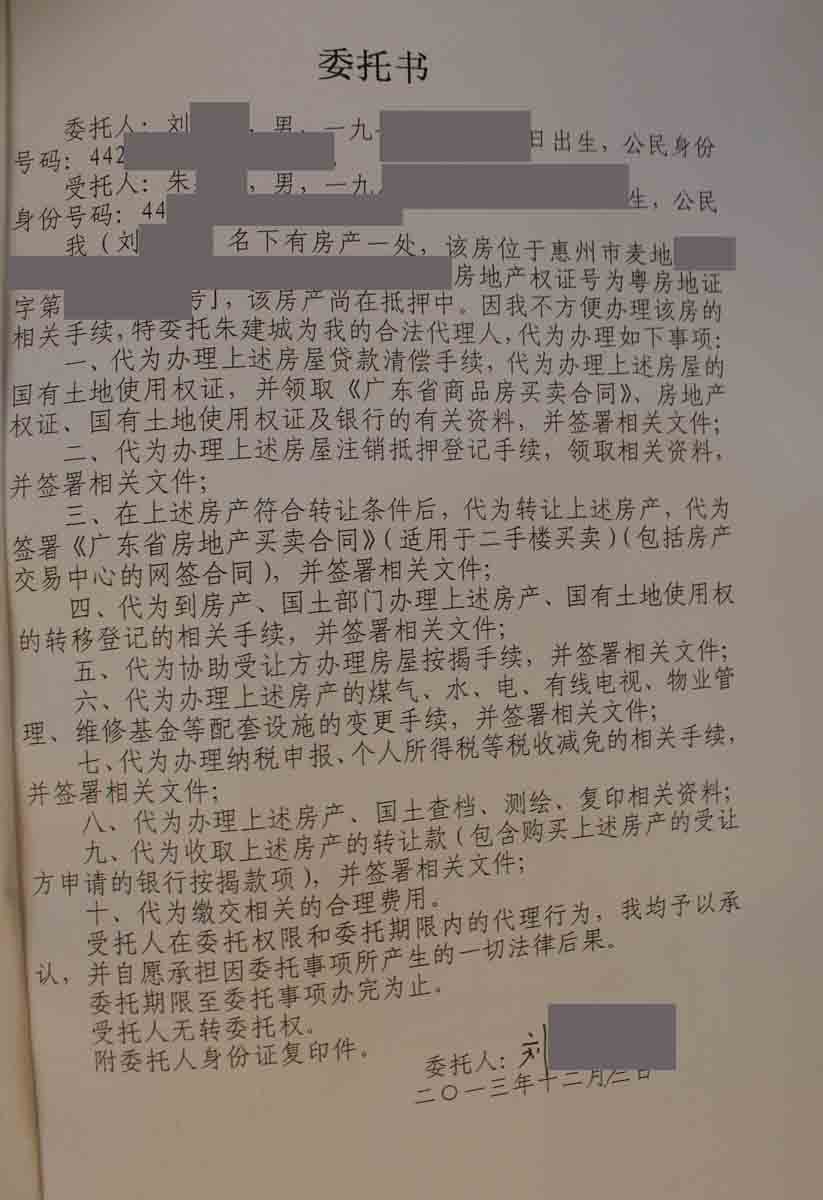 委托书
委托人：刘，男，一九日出生，公民身份
号码：442
受托人：朱，男，一九生，公民
身份号码：44
我（刘 名下有房产一处，该房位于惠州市麦地
房地产权证号为粤房地证
字第号」，该房产尚在抵押中。因我不方便办理该房的
相关手续，特委托朱建城为我的合法代理人，代为办理如下事项：
一、代为办理上述房屋贷款清偿手续，代为办理上述房屋的
国有土地使用权证，并领取《广东省商品房买卖合同》、房地产
权证、国有土地使用权证及银行的有关资料，并签署相关文件；
二、代为办理上述房屋注销抵押登记手续，领取相关资料，
并签署相关文件；
三、在上述房产符合转让条件后，代为转让上述房产，代为
签署《广东省房地产买卖合同》（适用于二手楼买卖）（包括房产
交易中心的网签合同），并签署相关文件；
四、代为到房产、国土部门办理上述房产、国有土地使用权
的转移登记的相关手续，并签署相关文件；
五、代为协助受让方办理房屋按揭手续，并签署相关文件；
六、代为办理上述房产的煤气、水、电、有线电视、物业管
理、维修基金等配套设施的变更手续，并签署相关文件；
七、代为办理纳税申报、个人所得税等税收减免的相关手续，
并签署相关文件；
八、代为办理上述房产、国土查档、测绘、复印相关资料；
九、代为收取上述房产的转让款（包含购买上述房产的受让
方申请的银行按揭款项），并签署相关文件；
十、代为缴交相关的合理费用。
受托人在委托权限和委托期限内的代理行为，我均予以承
认，并自愿承担因委托事项所产生的一切法律后果。
委托期限至委托事项办完为止。
受托人无转委托权。
附委托人身份证复印件。
委托人：刘
二〇一三年十二月三日